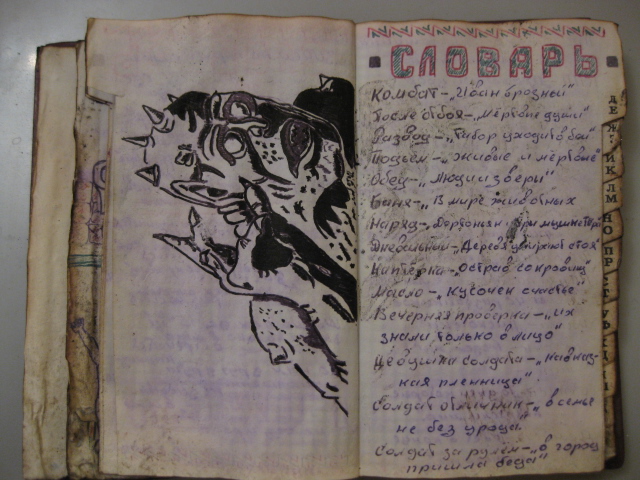 СЛОВАРЬ
Комбат - „Иван грозный"
После отбоя - „Мёртвые души"
Развод - „Табор уходит в бой"
Подъём - „Живые и мёртвые"
Обед - „Люди и звери"
Баня - „В мире животных"
Наряд - „Дартаньян и три мушкетёра"
Дневальный - „Деревья умирают стоя"
Каптёрка - „Остров сокровищ"
Масло - „Кусочек счастье"
Вечерняя проверка - „их
знали только в лицо"
Девушка солдата - „Кавказ-
ская пленница"
Солдат отличник - „в семье
не без урода"
Солдат за рулём - „в город
пришла беда"
Д Е Ж И К Л М Н О П Р С Т У